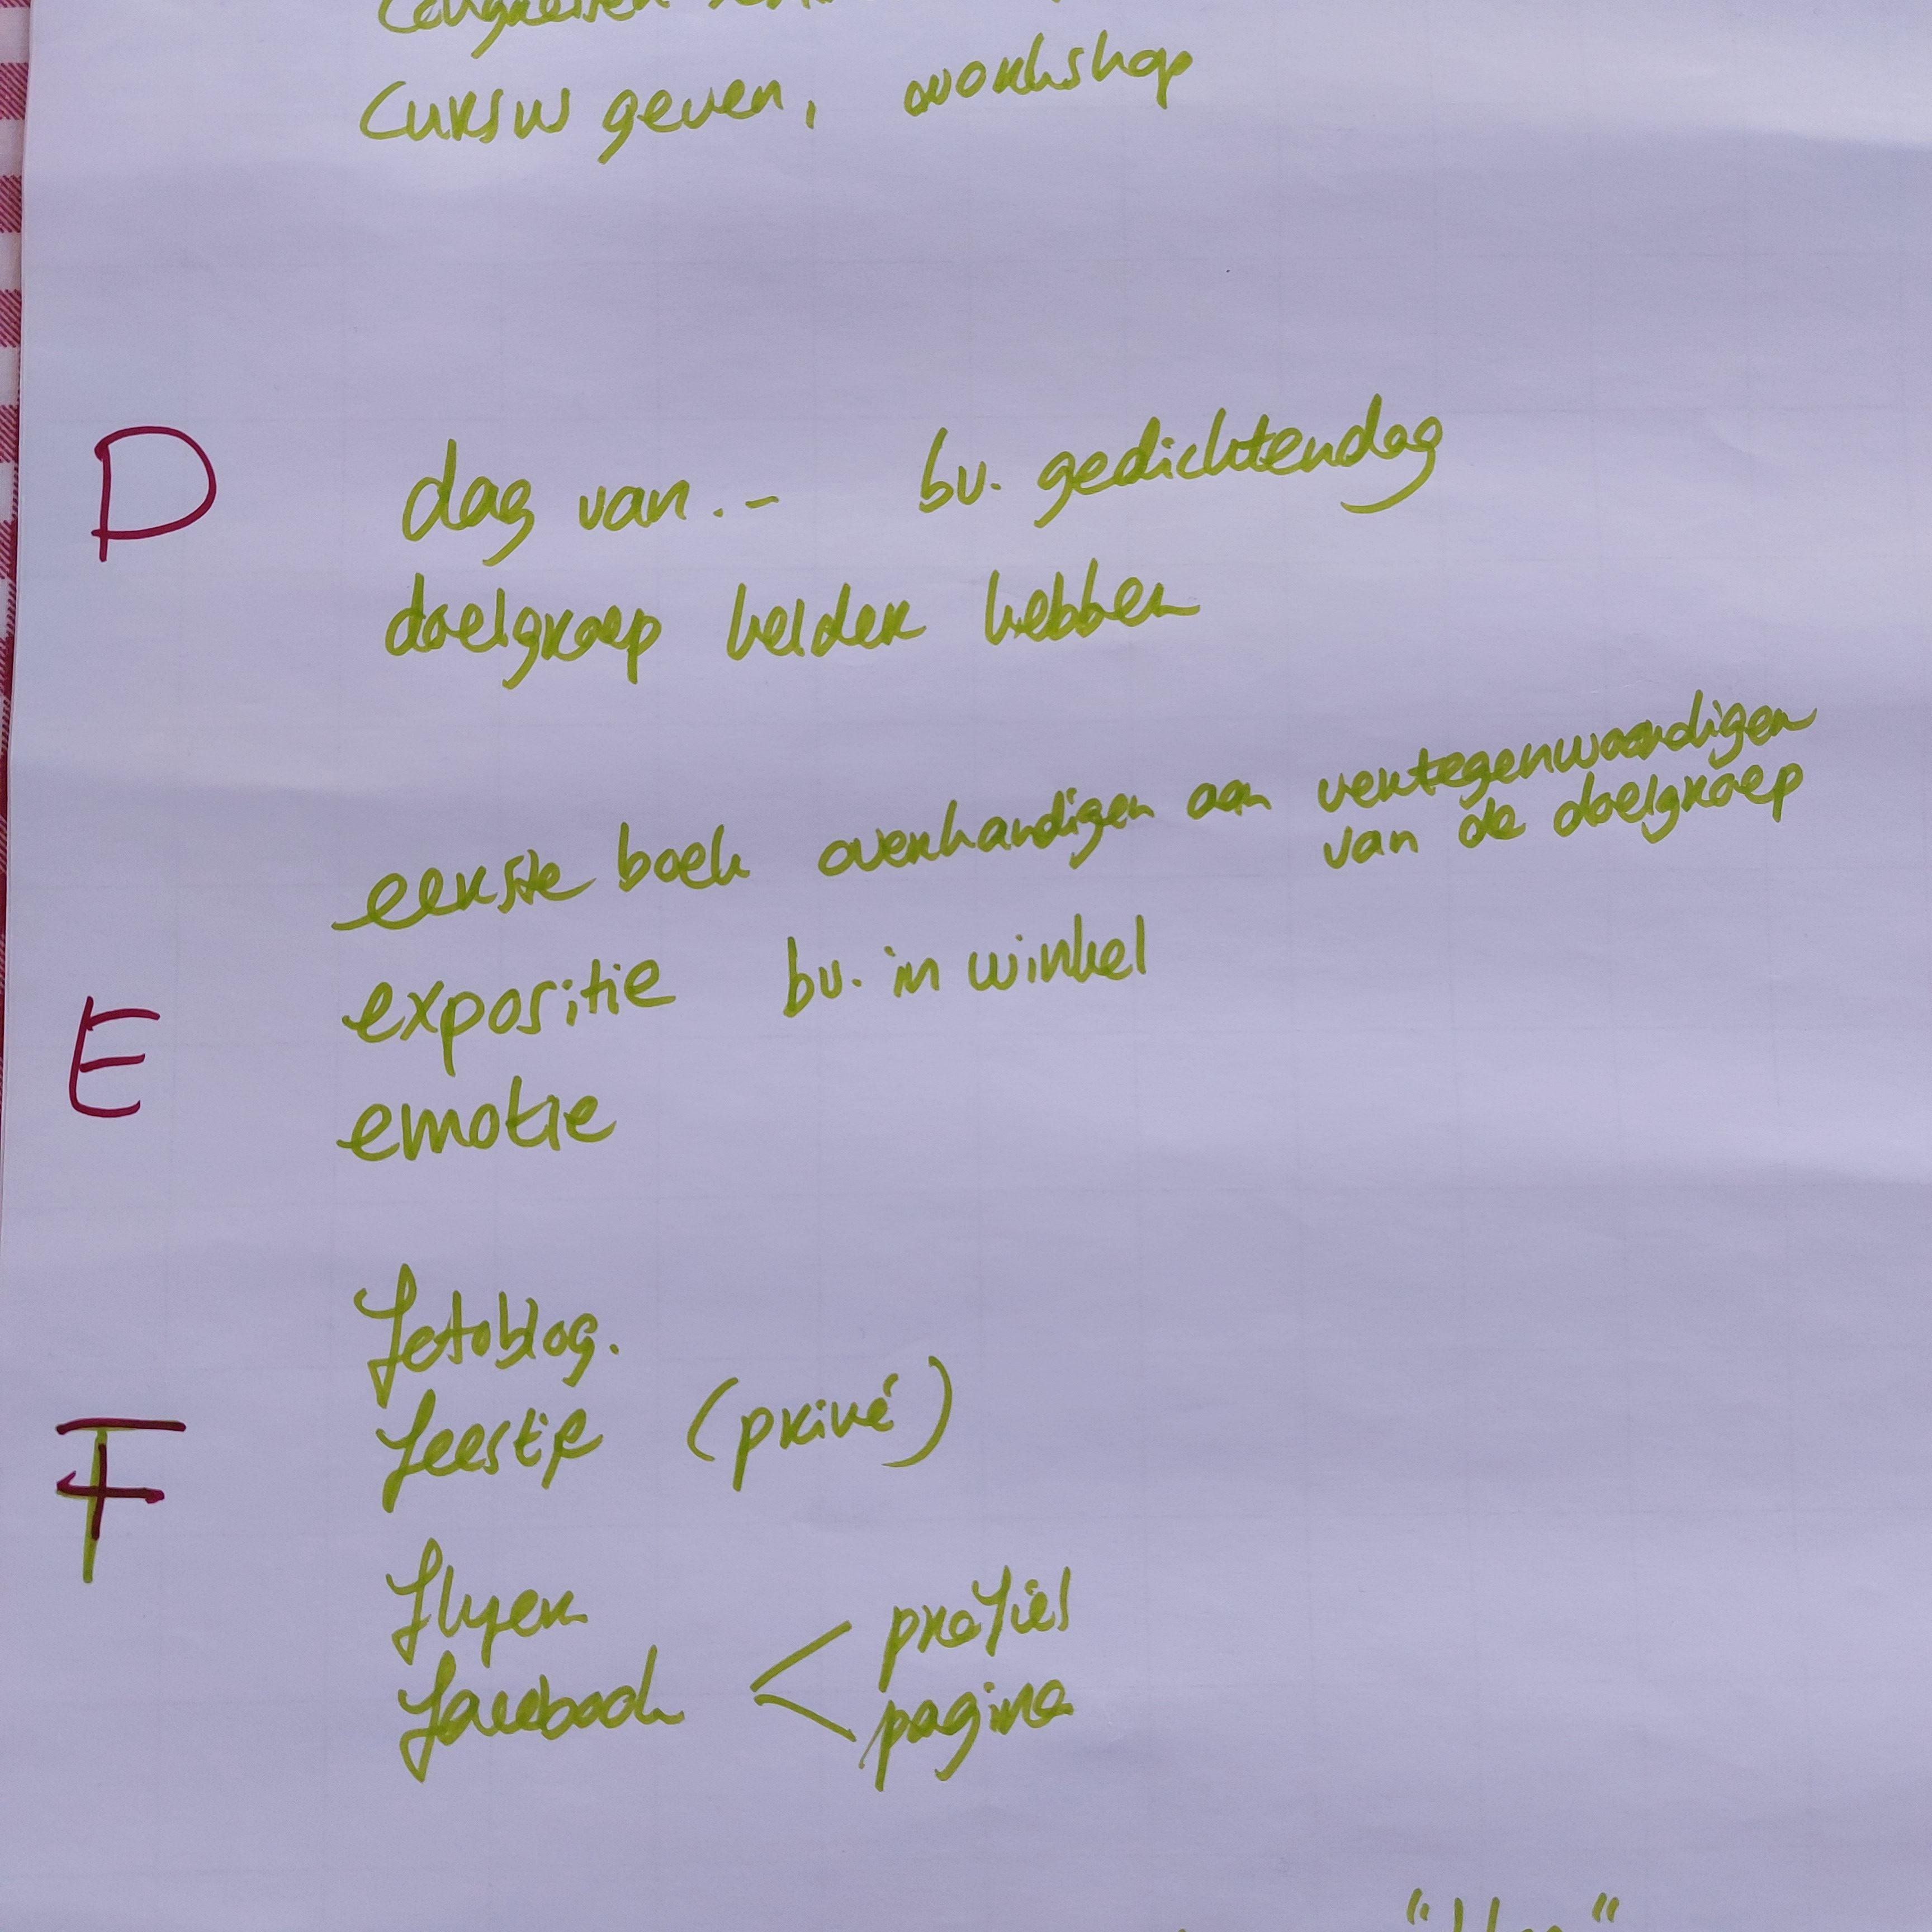 cursus geven, workshop
D
dag van .- bv. gedichtendag
doelgroep helder hebben
eerste boek overhandigen aan vertegenwoordigen
van de doelgroep
expositie bv. in winkel
E
emotie
fotoblog.
feestje (privé)
F
flyer
facebook < profiel
pagina